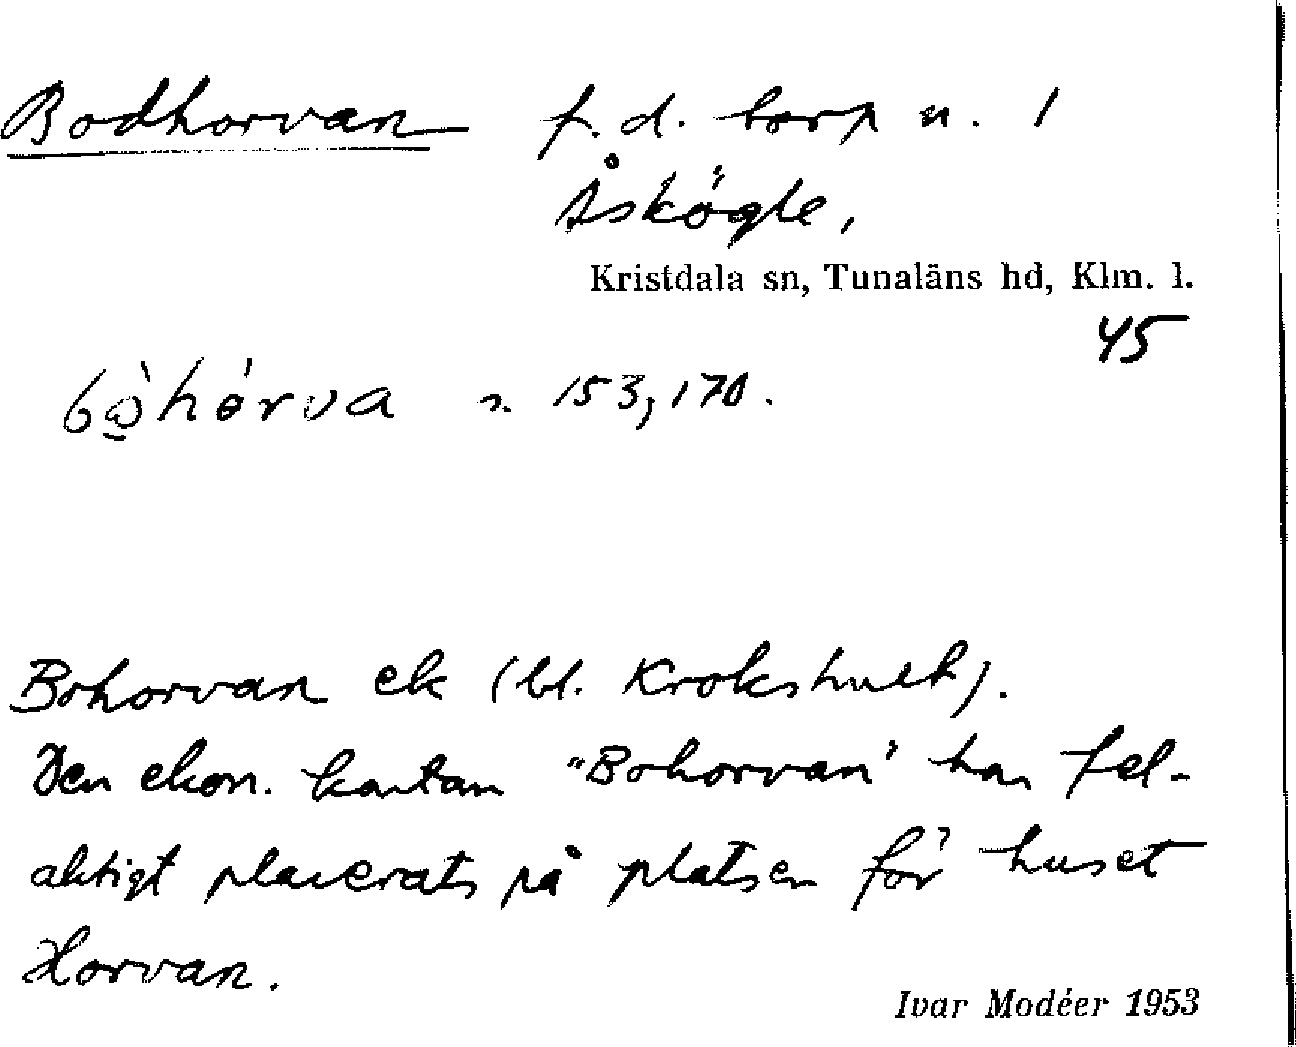 Bodhorvan f. d. torp u. 1
Åskögle,
Kristdala sn, Tunaläns hd, Klm. l.
45
153,170.
Bohorvan ek (bl. Krokshult).
Den ekon. kartan "Bohorvan" har fel-
aktigt placerats på platsen för huset
Horvan.
Ivar Modéer 1953